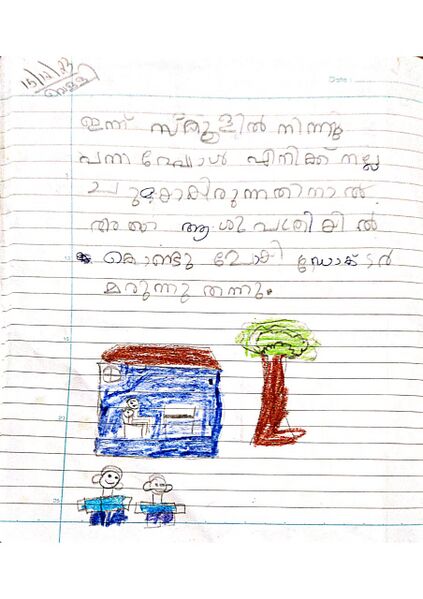 15/12/23
വെള്ളി
Date:
ഇന്ന് സ്കൂളിൽ നിന്നും
വന്നപ്പോൾ എനിക്ക് നല്ല
ചുമയായിരുന്നതിനാൽ
അമ്മ ആശുപത്രിയിൽ
കൊണ്ടു പോയി ഡോക്ടർ
മരുന്നു തന്നു.